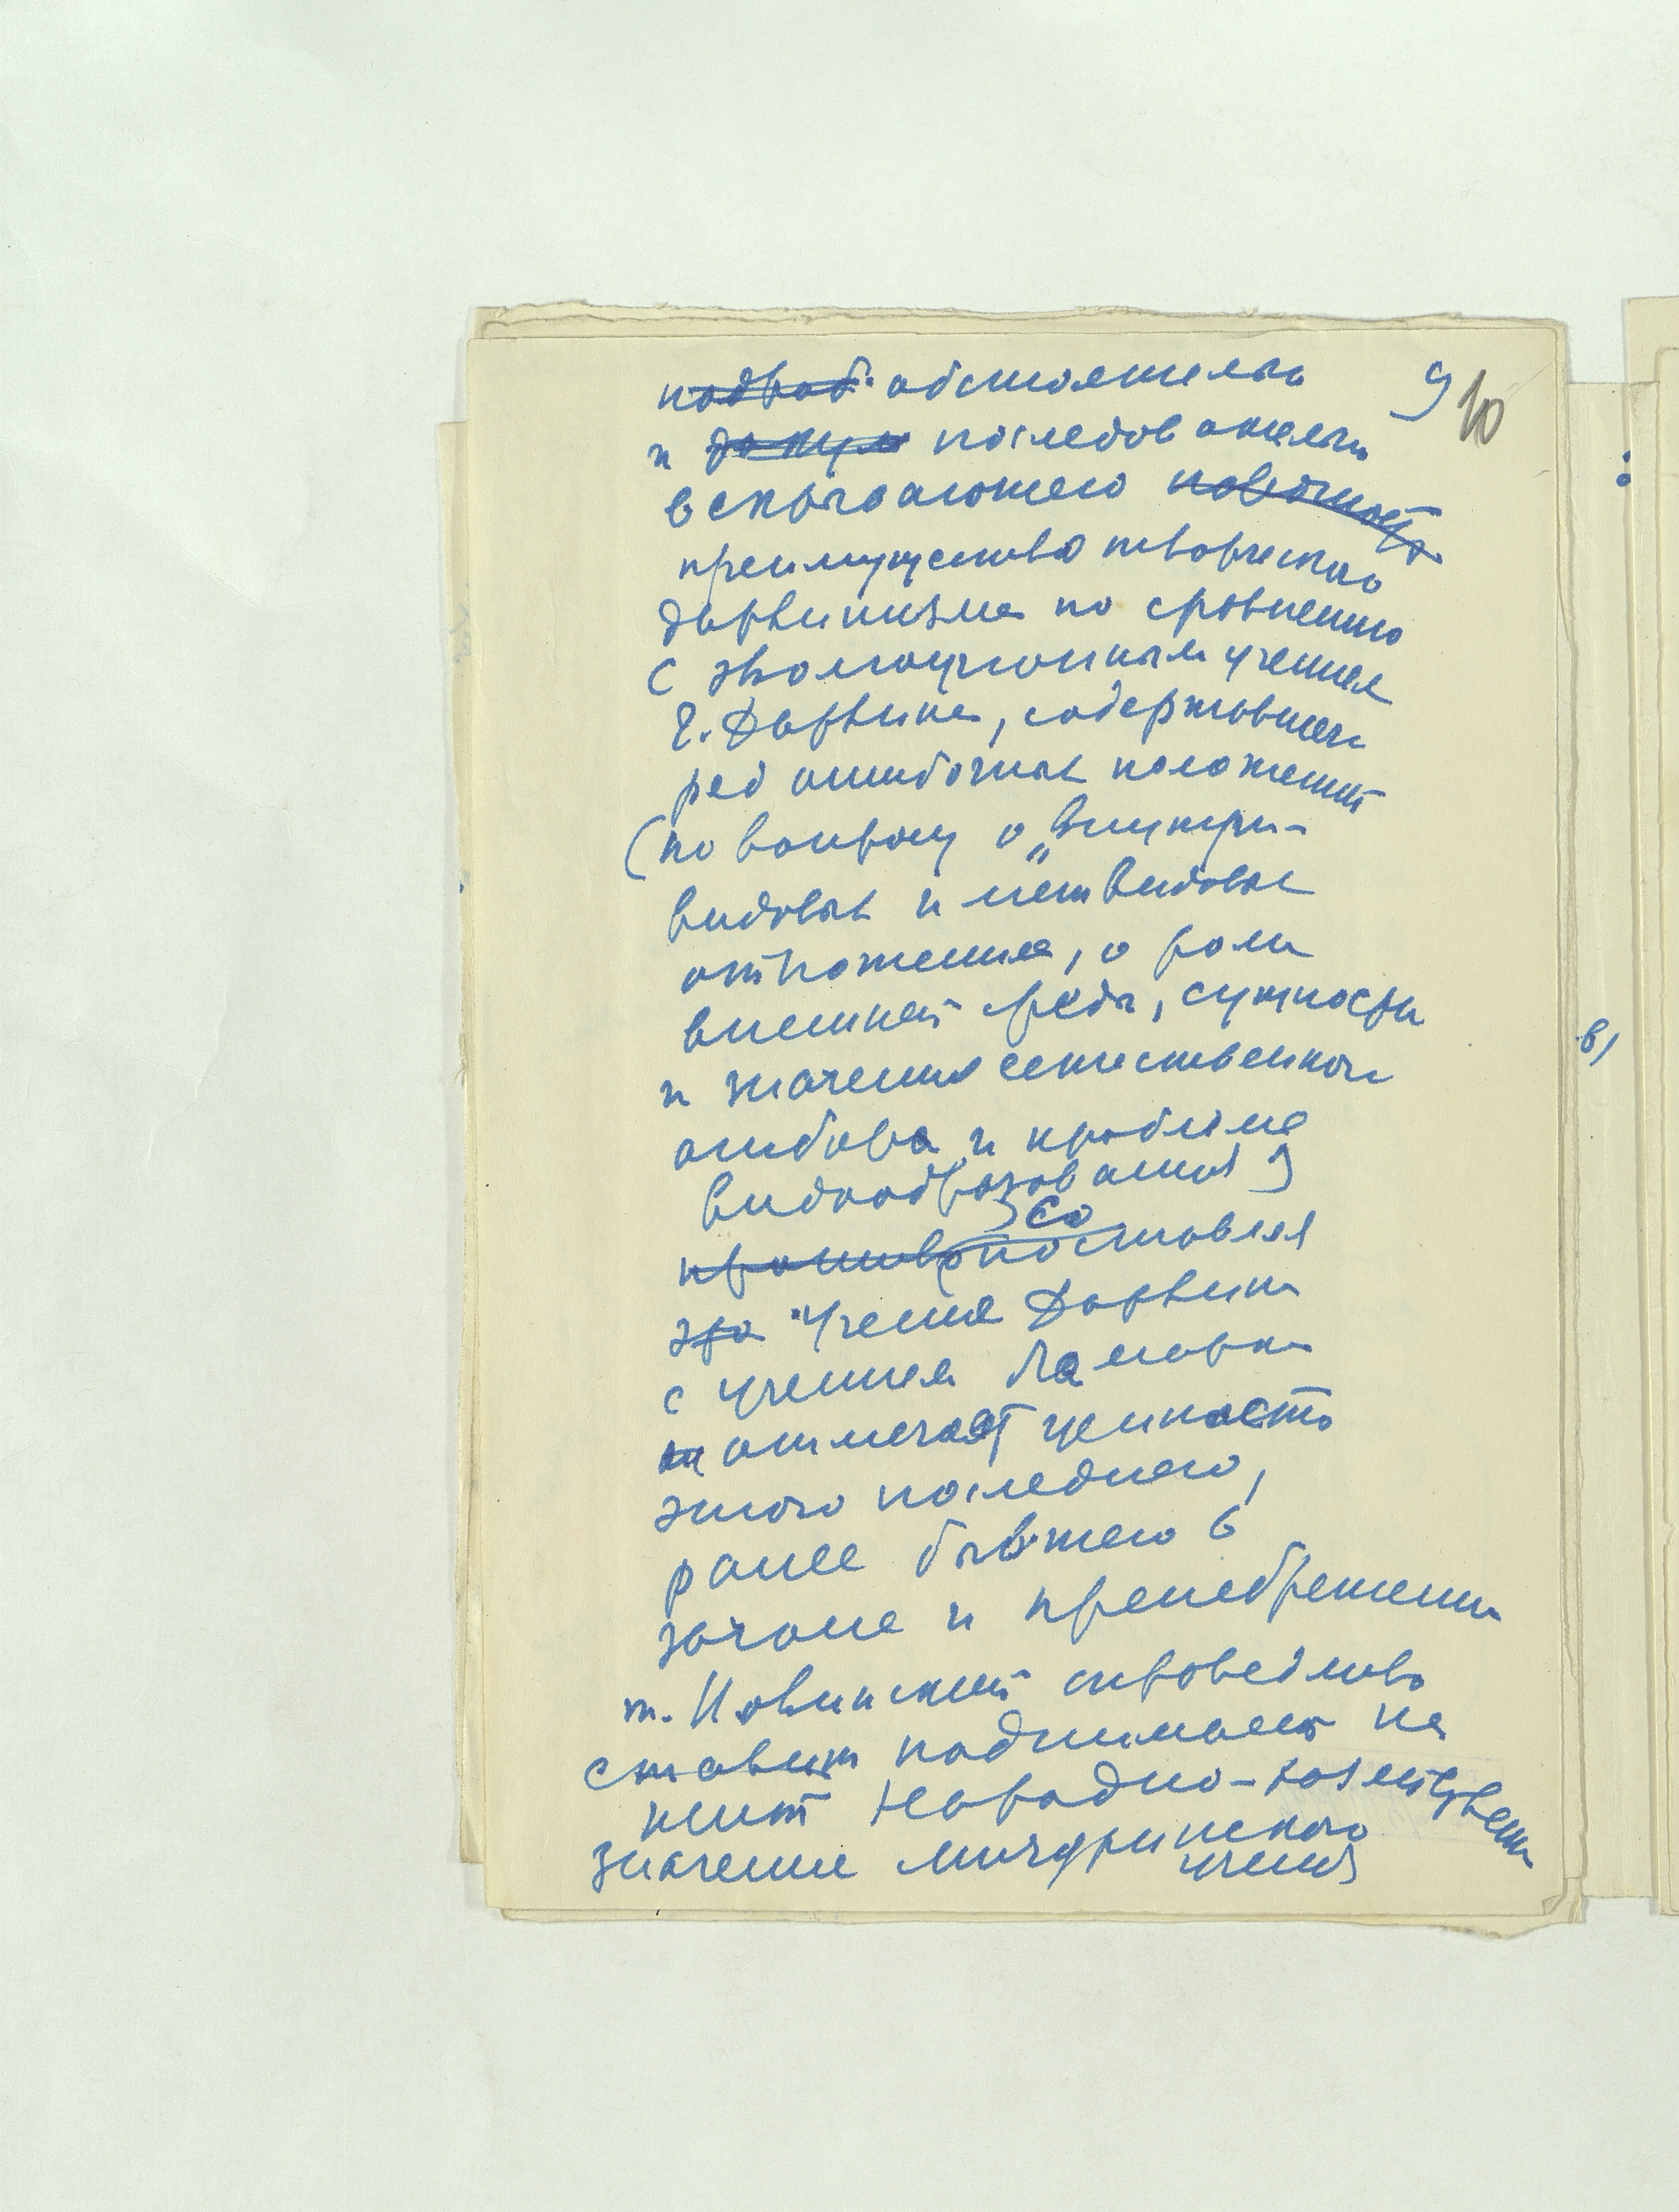 подроб. обстоятельн 9 10
и последовательн
вскрывающего
преимущество творческого
дарвинизма по сравнению
с эволюционным учением
Ч. Дарвина, содержавшем
ряд ошибочных положений
(по вопросу о „внутри-
видовых и межвидовых
отношениях, о роли
внешней среды, сущности
и значения естественного
отбора и проблеме
видообразования)
со
противопоставляя
эта учения Дарвина
с учением Ламарка
отмечает ценность
этого последнего,
ранее бывшего в
загоне и пренебрежении
т. справедливо
ставит поднимает на
щит народно-хозяйствен
значение мичуринского
учения
в)